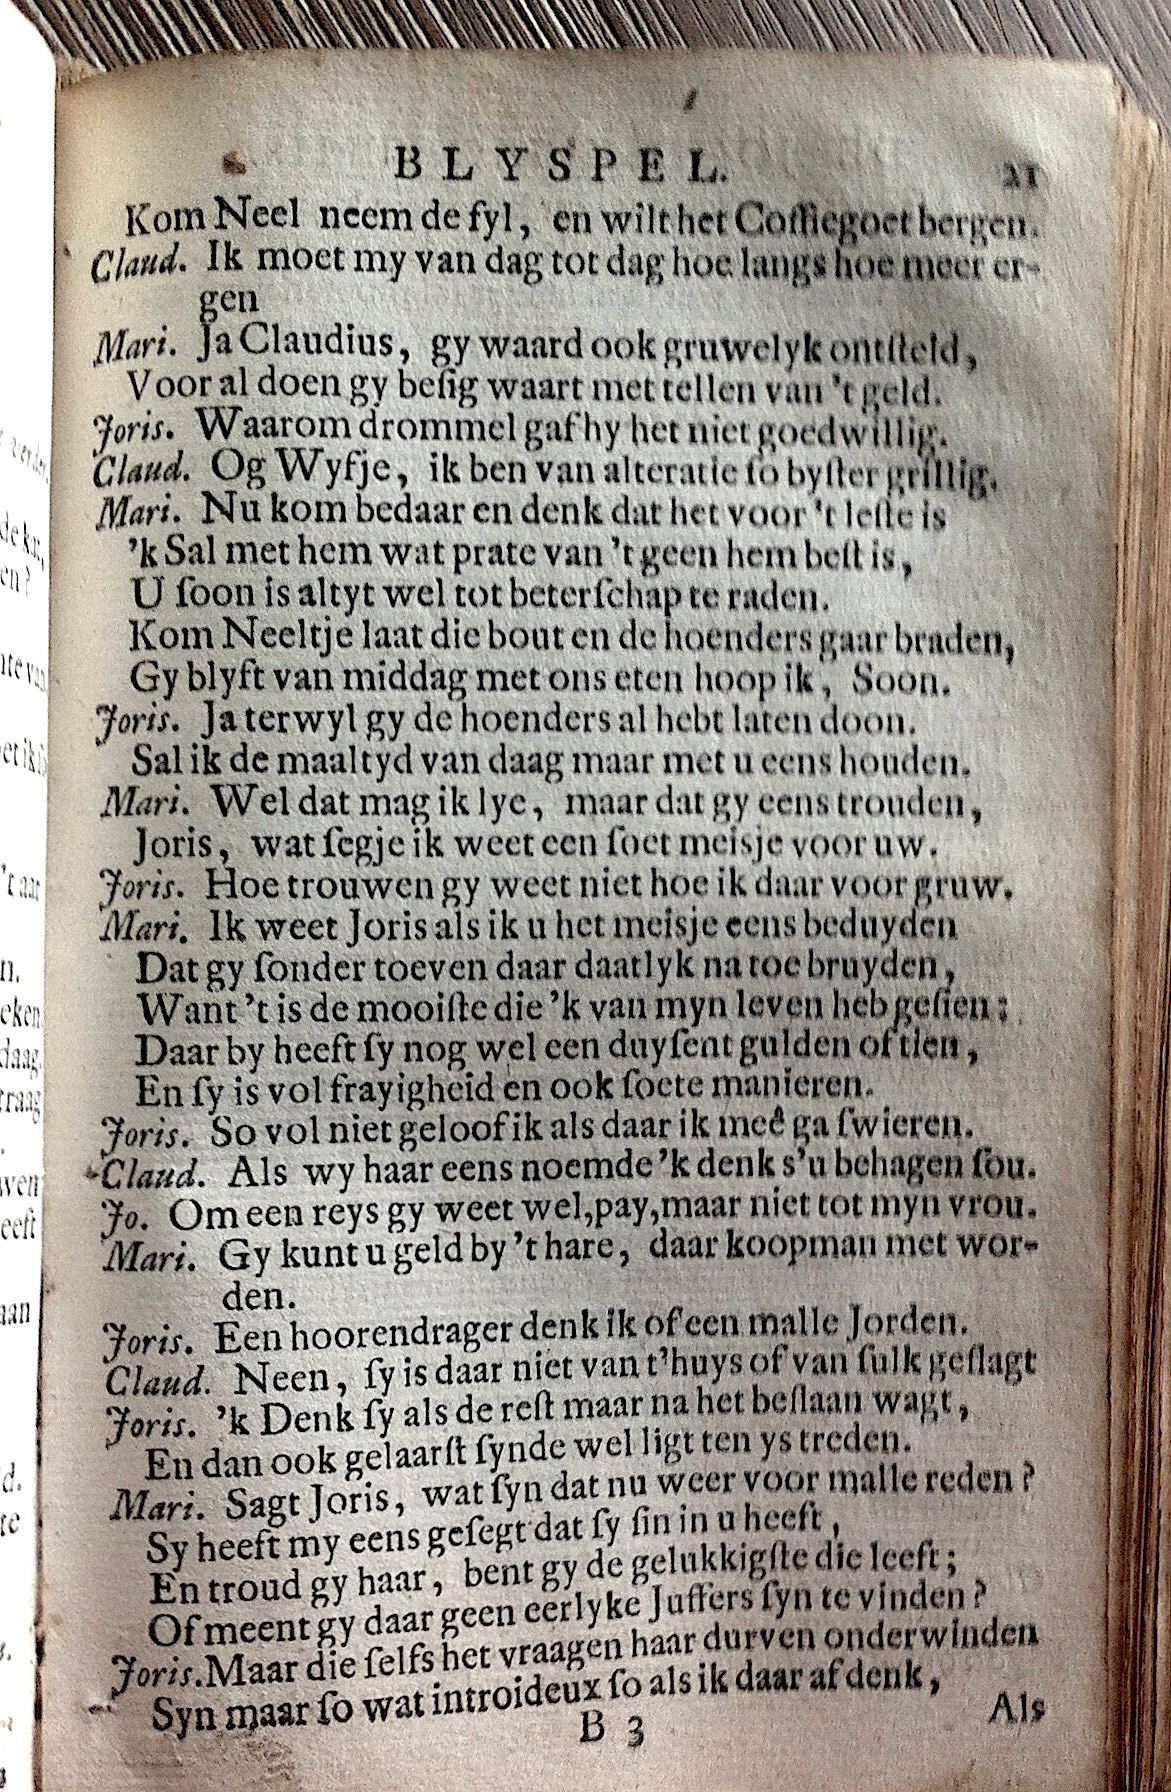 BLYSPEL. 21
Kom Neel neem de ſyl, en wilt het Coffiegoet bergen.
Claud. Ik moet my van dag tot dag hoe langs hoe meer er-
gen
Mari. Ja Claudius, gy waard ook gruwelyk ontſteld,
Voor al doen gy beſig waart met tellen van 't geld.
Joris. Waarom drommel gaf hy het niet goedwillig.
Claud. Og Wyfje, ik ben van alteratie ſo byſter grillig.
Mari. Nu kom bedaar en denk dat het voor 't leſte is
'k Sal met hem wat prate van 't geen hem beſt is,
U ſoon is altyt wel tot beterſchap te raden.
Kom Neeltje laat die bout en de hoenders gaar braden,
Gy blyft van middag met ons eten hoop ik, Soon.
Joris. Ja terwyl gy de hoenders al hebt laten doon.
Sal ik de maaltyd van daag maar met u eens houden.
Mari. Wel dat mag ik lye, maar dat gy eens trouden,
Joris, wat ſegje ik weet een ſoet meisje voor uw.
Joris. Hoe trouwen gy weet niet hoe ik daar voor gruw.
Mari. Ik weet Joris als ik u het meisje eens beduyden
Dat gy ſonder toeven daar daatlyk na toe bruyden,
Want 't is de mooiſte die 'k van myn leven heb geſien;
Daar by heeft ſy nog wel een duyſent gulden of tien,
En ſy is vol frayigheid en ook ſoete manieren.
Joris. So vol niet geloof ik als daar ik meê ga ſwieren.
Claud. Als wy haar eens noemde 'k denk s'u behagen ſou.
Jo. Om een reys gy weet wel, pay, maar niet tot myn vrou.
Mari. Gy kunt u geld by 't hare, daar koopman met wor-
den.
Joris. Een hoorendrager denk ik of een malle Jorden.
Claud. Neen, ſy is daar niet van t'huys of van ſulk geſlagt
Joris. 'k Denk ſy als de reſt maar na het beſlaan wagt,
En dan ook gelaarſt ſynde wel ligt ten ys treden.
Mari. Sagt Joris, wat ſyn dat nu weer voor malle reden?
Sy heeft my eens geſegt dat ſy ſin in u heeft,
En troud gy haar, bent gy de gelukkigſte die leeft;
Of meent gy daar geen eerlyke Juffers ſyn te vinden?
Joris. Maar die ſelfs het vraagen haar durven onderwinden
Syn maar ſo wat introideux ſo als ik daar af denk,
B 3 Als